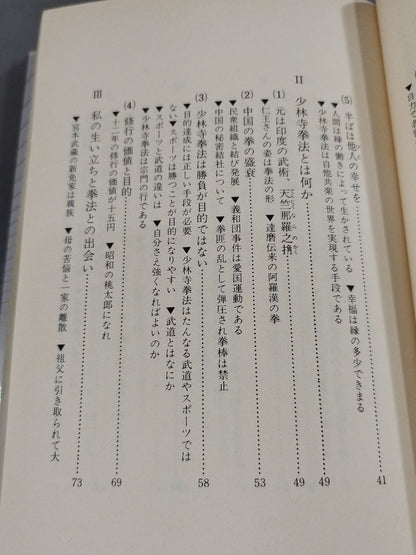 (5) 半ばは他人の幸せを……………41
▼人間は縁の働きによって生かされている ▼幸福は縁の多少できまる
▼少林寺拳法は自他共楽の世界を実現する手段である
II 少林寺拳法とは何か……………49
(1) 元は印度の武術、天竺那羅之捔……………49
▼仁王さんの姿は拳法の形 ▼達磨伝来の阿羅漢の拳
(2) 中国の拳の盛衰……………53
▼民衆組織と結び発展 ▼義和団事件は愛国運動である
▼中国の秘密結社について ▼拳匪の乱として弾圧され拳棒は禁止
(3) 少林寺拳法は勝負が目的ではない……………58
▼目的達成には正しい手段が必要 ▼少林寺拳法はたんなる武道やスポーツでは
ない ▼スポーツは勝つことが目的になりやすい ▼武道とはなにか
▼スポーツと武道の違いは ▼自分さえ強くなればよいのか
▼少林寺拳法は宗門の行である
(4) 修行の価値と目的……………69
▼十二年の修行の価値が十五円 ▼昭和の桃太郎になれ
III 私の生い立ちと拳法との出会い……………73
▼宮本武蔵の新免家は義族 ▼母の苦悩と一家の離散 ▼祖父に引き取られて大